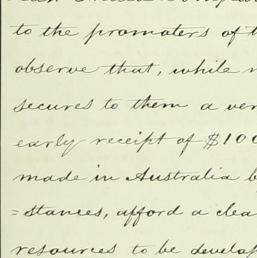 to the promoters of t
observe that, while
secures to them a ver
early receipt of $100
made in Australia b
=stances, afford a clea
resources to be develop